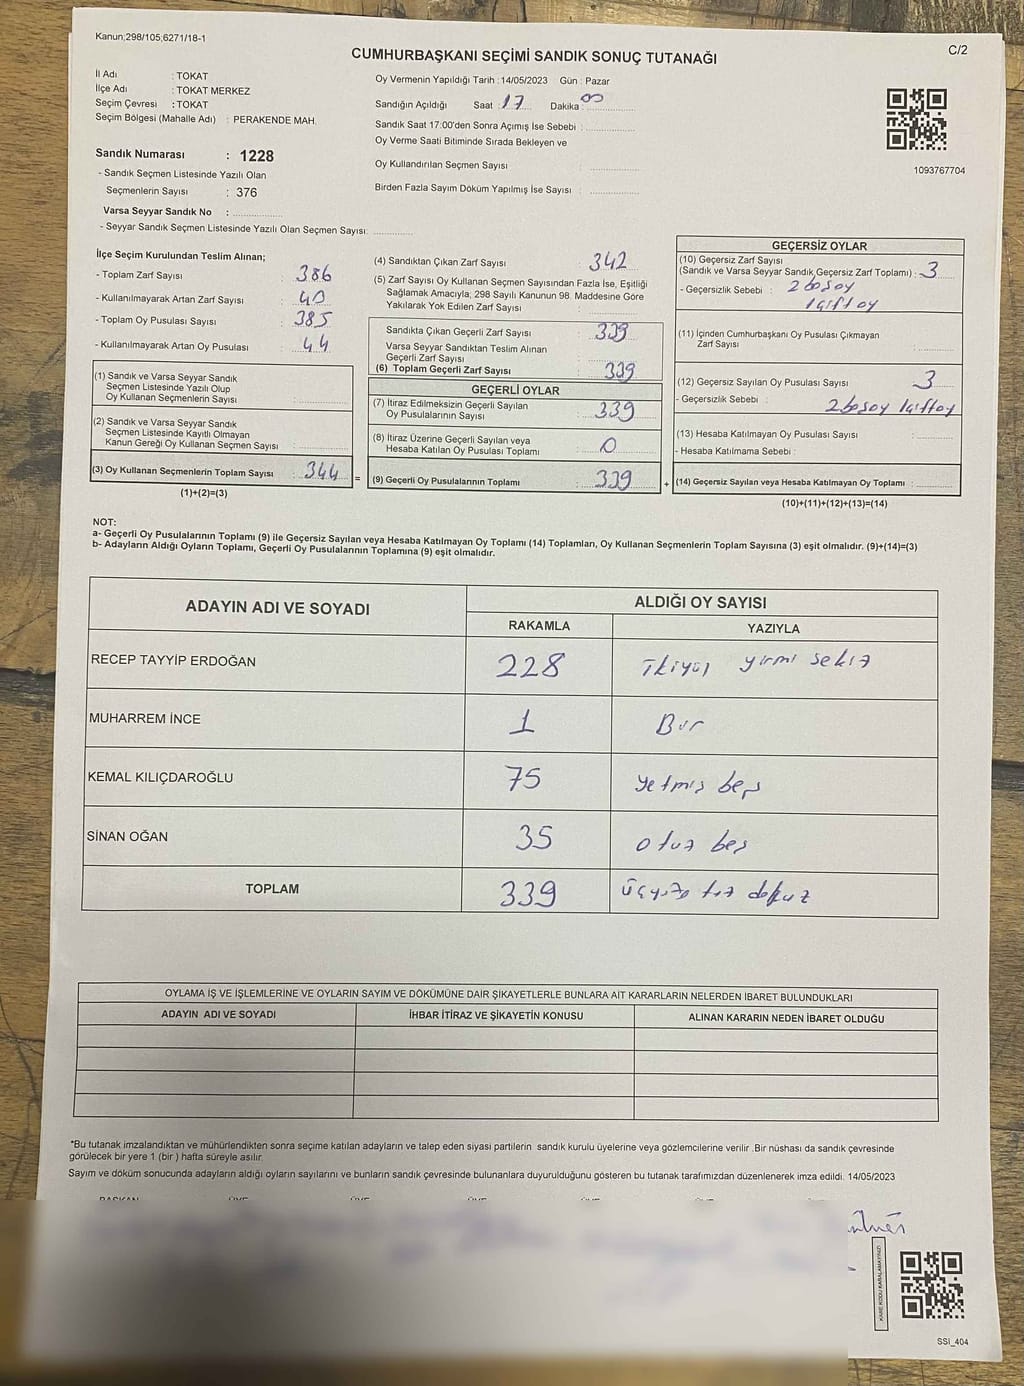 Kanun;298/105;6271/18-1
C/2
CUMHURBAŞKANI SEÇİMİ SANDIK SONUÇ TUTANAĞI
İl Adı : TOKAT
İlçe Adı : TOKAT MERKEZ
Seçim Çevresi : TOKAT
Seçim Bölgesi (Mahalle Adı) : PERAKENDE MAH.
Sandık Numarası : 1228
- Sandık Seçmen Listesinde Yazılı Olan
Seçmenlerin Sayısı : 376
Varsa Seyyar Sandık No :
- Seyyar Sandık Seçmen Listesinde Yazılı Olan Seçmen Sayısı:
Oy Vermenin Yapıldığı Tarih : 14/05/2023 Gün : Pazar
Sandığın Açıldığı Saat : 17 Dakika : 00
Sandık Saat 17:00'den Sonra Açımış İse Sebebi :
Oy Verme Saati Bitiminde Sırada Bekleyen ve
Oy Kullandırılan Seçmen Sayısı :
Birden Fazla Sayım Döküm Yapılmış İse Sayısı :
1093767704
İlçe Seçim Kurulundan Teslim Alınan;
- Toplam Zarf Sayısı : 386
- Kullanılmayarak Artan Zarf Sayısı : 40
- Toplam Oy Pusulası Sayısı : 385
- Kullanılmayarak Artan Oy Pusulası : 44
(1) Sandık ve Varsa Seyyar Sandık
Seçmen Listesinde Yazılı Olup
Oy Kullanan Seçmenlerin Sayısı :
(2) Sandık ve Varsa Seyyar Sandık
Seçmen Listesinde Kayıtlı Olmayan
Kanun Gereği Oy Kullanan Seçmen Sayısı :
(3) Oy Kullanan Seçmenlerin Toplam Sayısı : 344 =
(1)+(2)=(3)
(4) Sandıktan Çıkan Zarf Sayısı : 342
(5) Zarf Sayısı Oy Kullanan Seçmen Sayısından Fazla İse, Eşitliği
Sağlamak Amacıyla; 298 Sayılı Kanunun 98. Maddesine Göre
Yakılarak Yok Edilen Zarf Sayısı :
Sandıkta Çıkan Geçerli Zarf Sayısı : 339
Varsa Seyyar Sandıktan Teslim Alınan
Geçerli Zarf Sayısı :
(6) Toplam Geçerli Zarf Sayısı : 339
GEÇERLİ OYLAR
(7) İtiraz Edilmeksizin Geçerli Sayılan
Oy Pusulalarının Sayısı : 339
(8) İtiraz Üzerine Geçerli Sayılan veya
Hesaba Katılan Oy Pusulası Toplamı : 0
(9) Geçerli Oy Pusulalarının Toplamı : 339 +
GEÇERSİZ OYLAR
(10) Geçersiz Zarf Sayısı
(Sandık ve Varsa Seyyar Sandık Geçersiz Zarf Toplamı) : 3
- Geçersizlik Sebebi : 2 boşoy
1 çift oy
(11) İçinden Cumhurbaşkanı Oy Pusulası Çıkmayan
Zarf Sayısı :
(12) Geçersiz Sayılan Oy Pusulası Sayısı : 3
- Geçersizlik Sebebi : 2 boşoy 1 çift oy
(13) Hesaba Katılmayan Oy Pusulası Sayısı :
- Hesaba Katılmama Sebebi :
(14) Geçersiz Sayılan veya Hesaba Katılmayan Oy Toplamı :
(10)+(11)+(12)+(13)=(14)
NOT:
a- Geçerli Oy Pusulalarının Toplamı (9) ile Geçersiz Sayılan veya Hesaba Katılmayan Oy Toplamı (14) Toplamları, Oy Kullanan Seçmenlerin Toplam Sayısına (3) eşit olmalıdır. (9)+(14)=(3)
b- Adayların Aldığı Oyların Toplamı, Geçerli Oy Pusulalarının Toplamına (9) eşit olmalıdır.
ADAYIN ADI VE SOYADI ALDIĞI OY SAYISI
RAKAMLA YAZIYLA
RECEP TAYYİP ERDOĞAN 228 ikiyüz yirmi sekiz
MUHARREM İNCE 1 Bir
KEMAL KILIÇDAROĞLU 75 yetmiş beş
SİNAN OĞAN 35 otuz beş
TOPLAM 339 üçyüz otuz dokuz
OYLAMA İŞ VE İŞLEMLERİNE VE OYLARIN SAYIM VE DÖKÜMÜNE DAİR ŞİKAYETLERLE BUNLARA AİT KARARLARIN NELERDEN İBARET BULUNDUKLARI
ADAYIN ADI VE SOYADI İHBAR İTİRAZ VE ŞİKAYETİN KONUSU ALINAN KARARIN NEDEN İBARET OLDUĞU
*Bu tutanak imzalandıktan ve mühürlendikten sonra seçime katılan adayların ve talep eden siyasi partilerin sandık kurulu üyelerine veya gözlemcilerine verilir .Bir nüshası da sandık çevresinde
görülecek bir yere 1 (bir ) hafta süreyle asılır.
Sayım ve döküm sonucunda adayların aldığı oyların sayılarını ve bunların sandık çevresinde bulunanlara duyurulduğunu gösteren bu tutanak tarafımızdan düzenlenerek imza edildi. 14/05/2023
KARE KODU KARALAMAYINIZ!
SSI_404